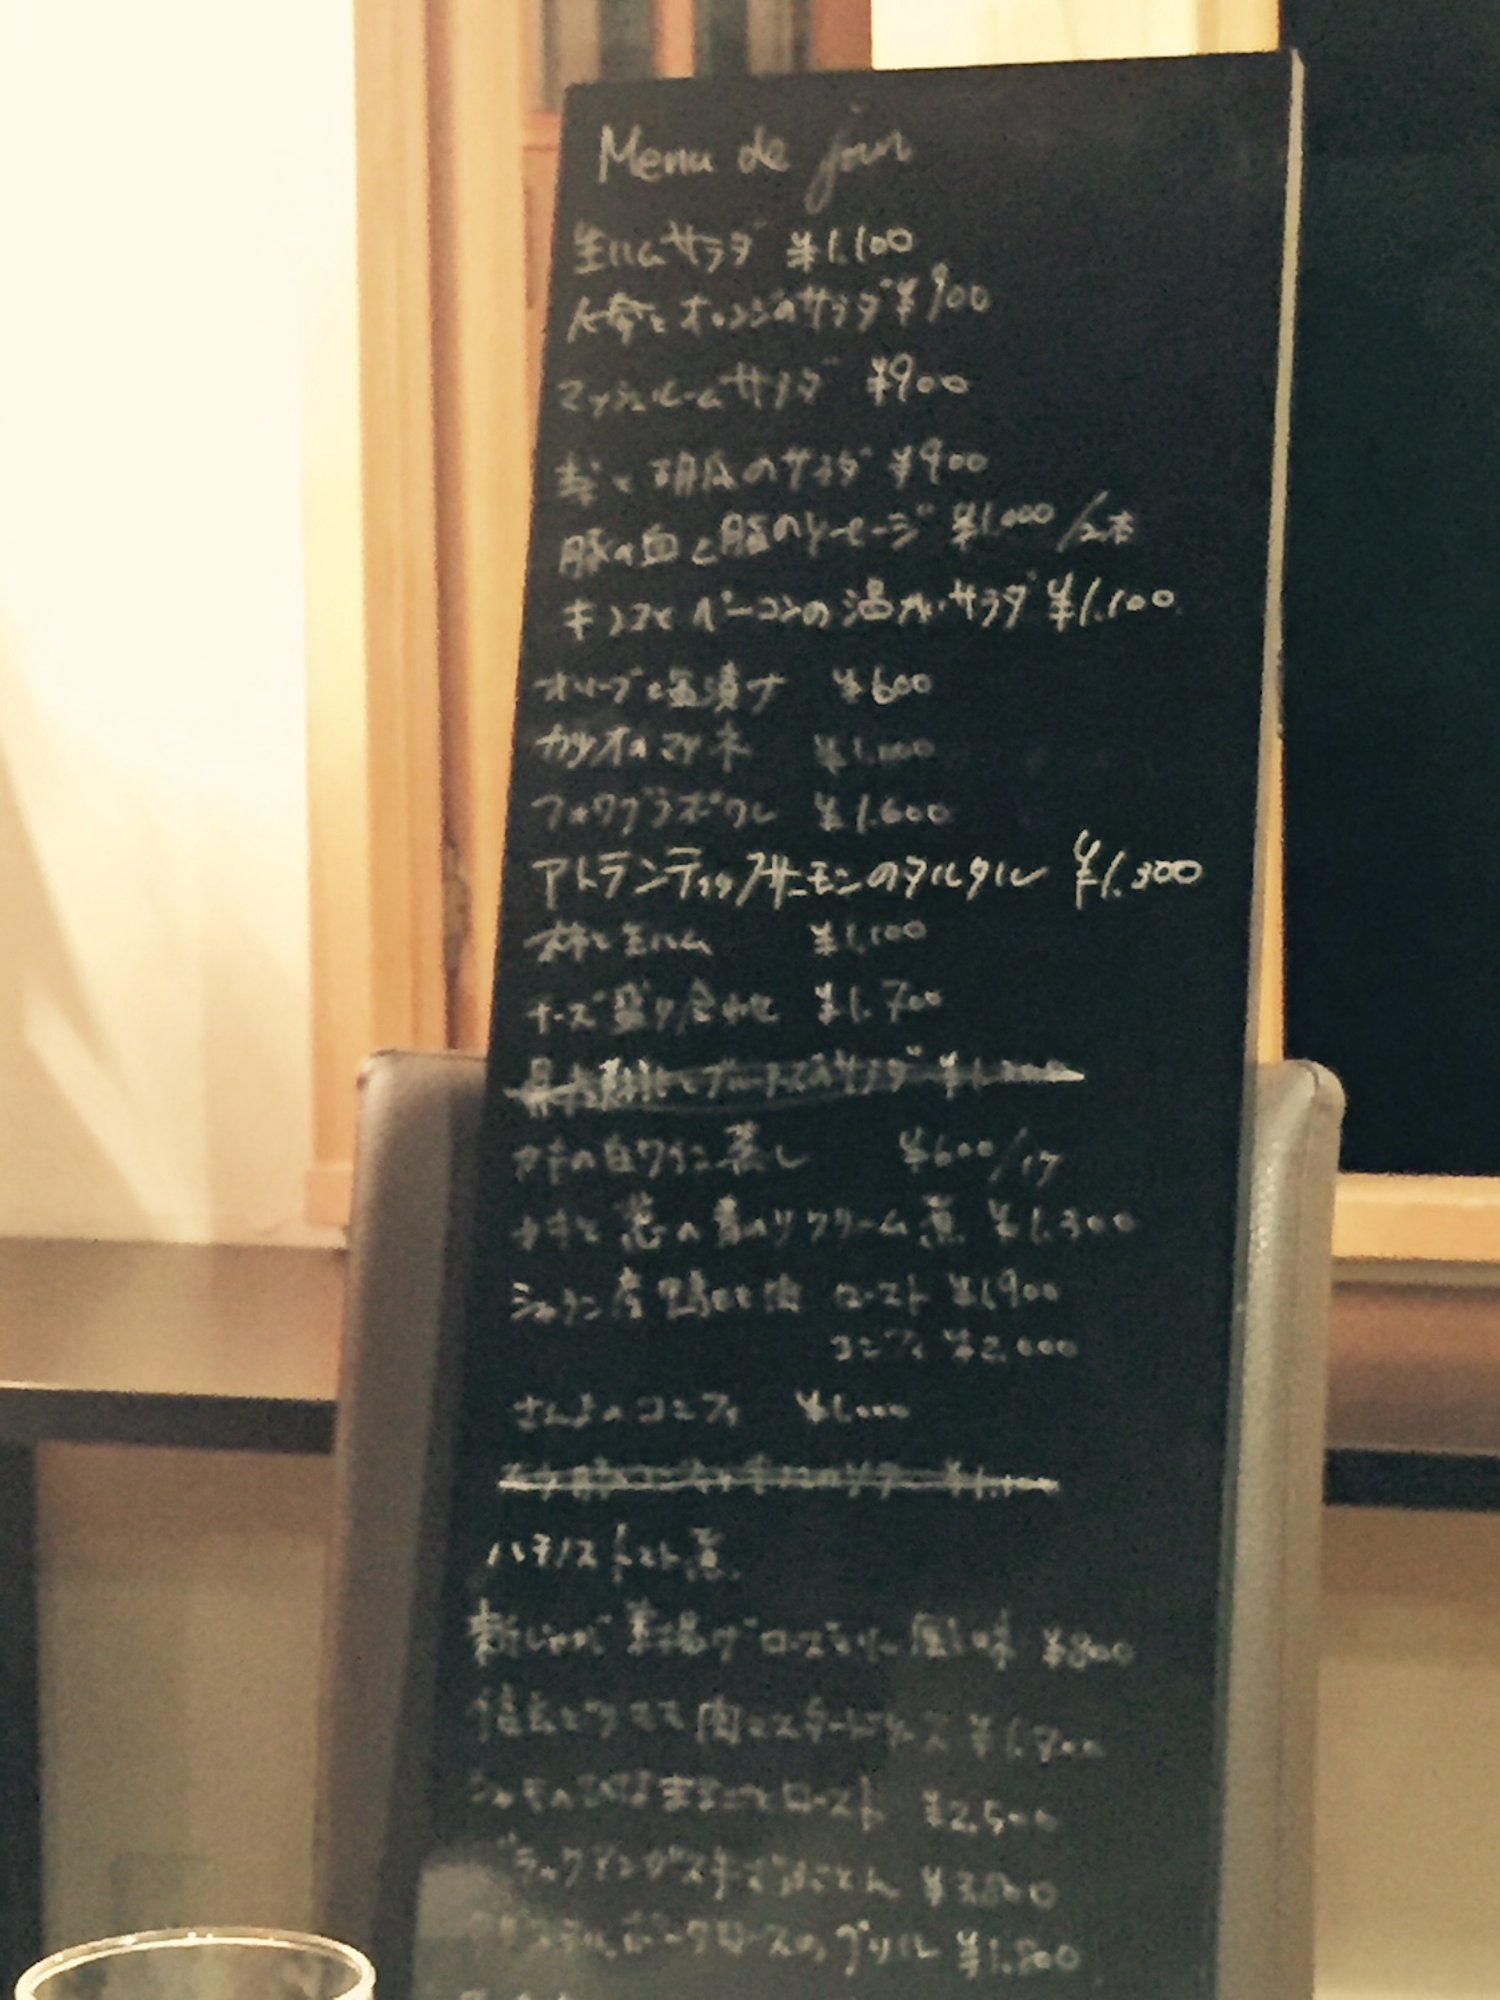 Menu de jour
生ハムサラダ ¥1,100
人参とオレンジのサラダ ¥900
マッシュルームサラダ ¥900
胡瓜のサラダ ¥900
豚の血と脂のソーセージ ¥1,000/2本
キノコとベーコンの温かいサラダ ¥1,100
オリーブと塩漬け ¥600
カツオのマリネ ¥1,000
フォワグラポワレ ¥1,600
アトランティックサーモンのタルタル ¥1,300
柿と生ハム ¥1,100
チーズ盛り合わせ ¥1,700
カキの白ワイン蒸し ¥600/1ケ
カキと葱の青のりクリーム煮 ¥1,300
シャラン産鴨もも肉 ロースト ¥1,900
コンフィ ¥2,000
さんまのコンフィ ¥1,000
ハチノストマト煮
新じゃが素揚げローズマリー風味 ¥800
¥1,700
まるごとロースト ¥2,500
ブラックアンガス
ポークロースのグリル ¥1,800